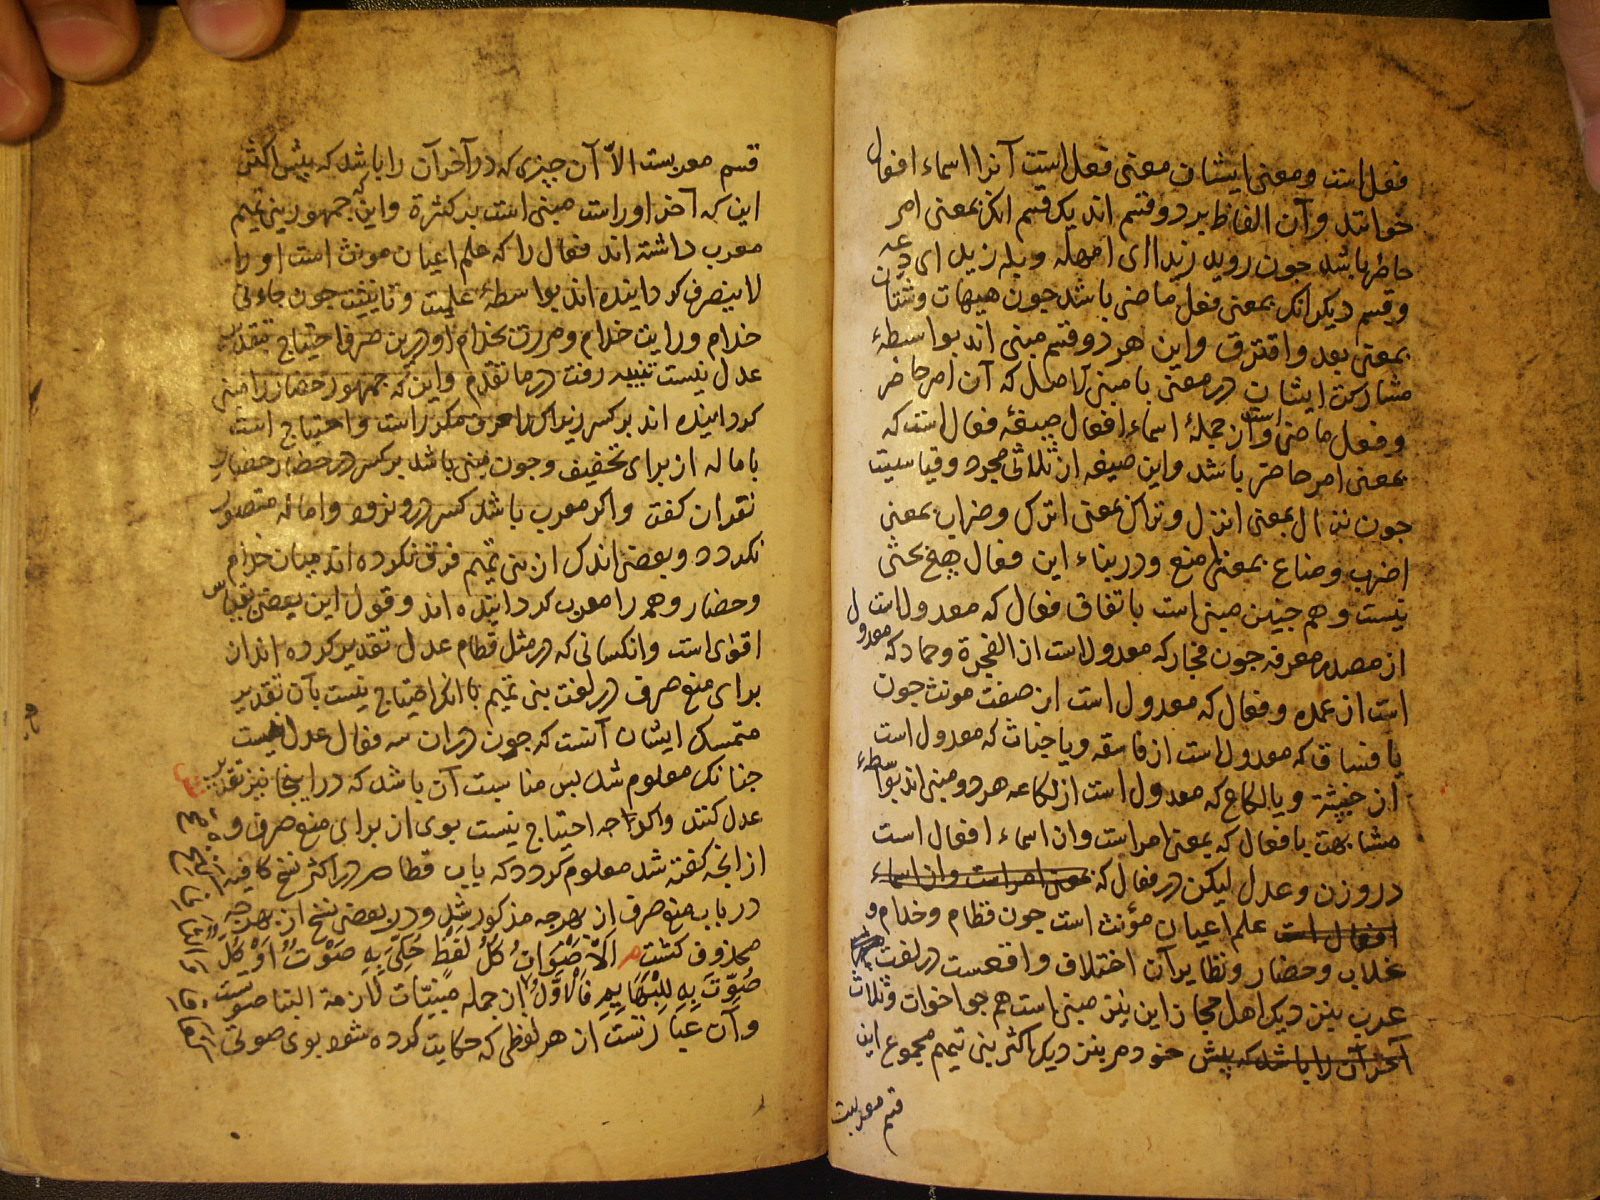 فعل است و معنی ایشان معنی فعل است آنرا اسماء افعال
خوانند و آن الفاظ بر دو قسم اند یک قسم انکه بمعنی امر
حاضر باشد جون روید زیدا ای امهله و بله زید ای دعه
و قسم دیکر انکه بمعنی فعل ماضی باشد جون هیهات و شتان
بمعنی بعد و افترق و این هر دو قسم مبنی اند بواسطهٔ
مشارکت ایشان در معنی با مبنی الاصل که آن امر حاضر
و فعل ماضی است و از جملهٔ اسماء افعال صیغهٔ فعال است که
بمعنی امر حاضر باشد و این صیغه از ثلاثی مجرد و قیاسیت
جون نزال بمعنی انزل و تراک بمعنی اترک و ضراب بمعنی
اضرب و مناع بمعنی امنع و در بناء این فعال هیخ بحثی
نیست و هم جنین مبنی است باتفاق فعال که معدول است
از مصدر معرفه جون فجار که معدول است از الفجرة و حماد که معدول
است از عمده و فعال که معدول است از صفت مونث جون
یا فساق که معدول است از فاسقه و یا خباث که معدول است
از خبیثة و یا لکاع که معدول است از لکاعه هر دو مبنی اند بواسطهٔ
مشابهت با فعال که بمعنی امر است وان اسماء افعال است
در وزن و عدل لیکن در فعال که بمعنی امر است وان اسماء
افعال است علم اعیان مؤنث است جون قطام و خدام و
غلاب و حضار و نظایر آن اختلاف واقعست در لغت
عرب نزد دیک اهل حجاز این نیز مبنی است هم جو اخوات و ثلاث
آخر آن را باشد که پیش خود مر بنزد دیک اکثر بنی تمیم مجموع این
قسم معربست
قسم معربست الا آن جیزی که در آخر آن را باشد که پیش اکثر
این که آخر او راست مبنی است بر کثرة و این که جمهور بنی تمیم
معرب داشته اند فعال را که علم اعیان مونث است او را
لا ینصرف کردانیده اند بواسطهٔ علمیت و تانیث جون جاءنی
خدام و رایت خدام و مررت بخدام او در بن صرف احتیاج بتقدیر
عدل نیست تنبیه رفت در ما تقدم و این که جمهور حضار را مبنی
کردانیده اند بر کسر زیرا که را حرف مکرر است و احتیاج است
باماله از برای تخفیف و جون مبنی باشد بر کسر در حضار حضار
نقدان کفت و اکر معرب باشد کسر درو نرود و اماله متصور
نکردد و بعضی اندک از بنی تمیم فرق نکرده اند میان خدام
و حضار و همه را معرب کردانیده اند و قول این بعضی بقیاس
اقوای است و انکسانی که در مثل قطام عدل تقدیر کرده اند از
برای منع صرف در لغت بنی تمیم با انکه احتیاج نیست بآن تقدیر
متمسک ایشان آنست که جون در ان سه فعال عدل هست
جنانک معلوم شد بس مناسبت آن باشد که در اینجا نیز تقدیر
عدل کنند و اکر جه احتیاج نیست بوی از برای منع صرف و
از انجه کفته شد معلوم کردد که باب قطام در اکثر نسخ کافیه
در باب منع صرف از بهر جه مذکور شد و در بعضی نسخ از بهر جه
محذوف کشت م اَلاَصْوَاتُ کُلُّ لَفْظٍ حُکِیَ بِهِ صَوْتٌ اَوْ
صُوِّتَ بِهِ لِلْبَهَایِمِ فَالْاَوَّلُ از جمله مبنیات لازمة البنا صوتست
و آن عبارتست از هر لفظی که حکایت کرده شود بوی صوتی